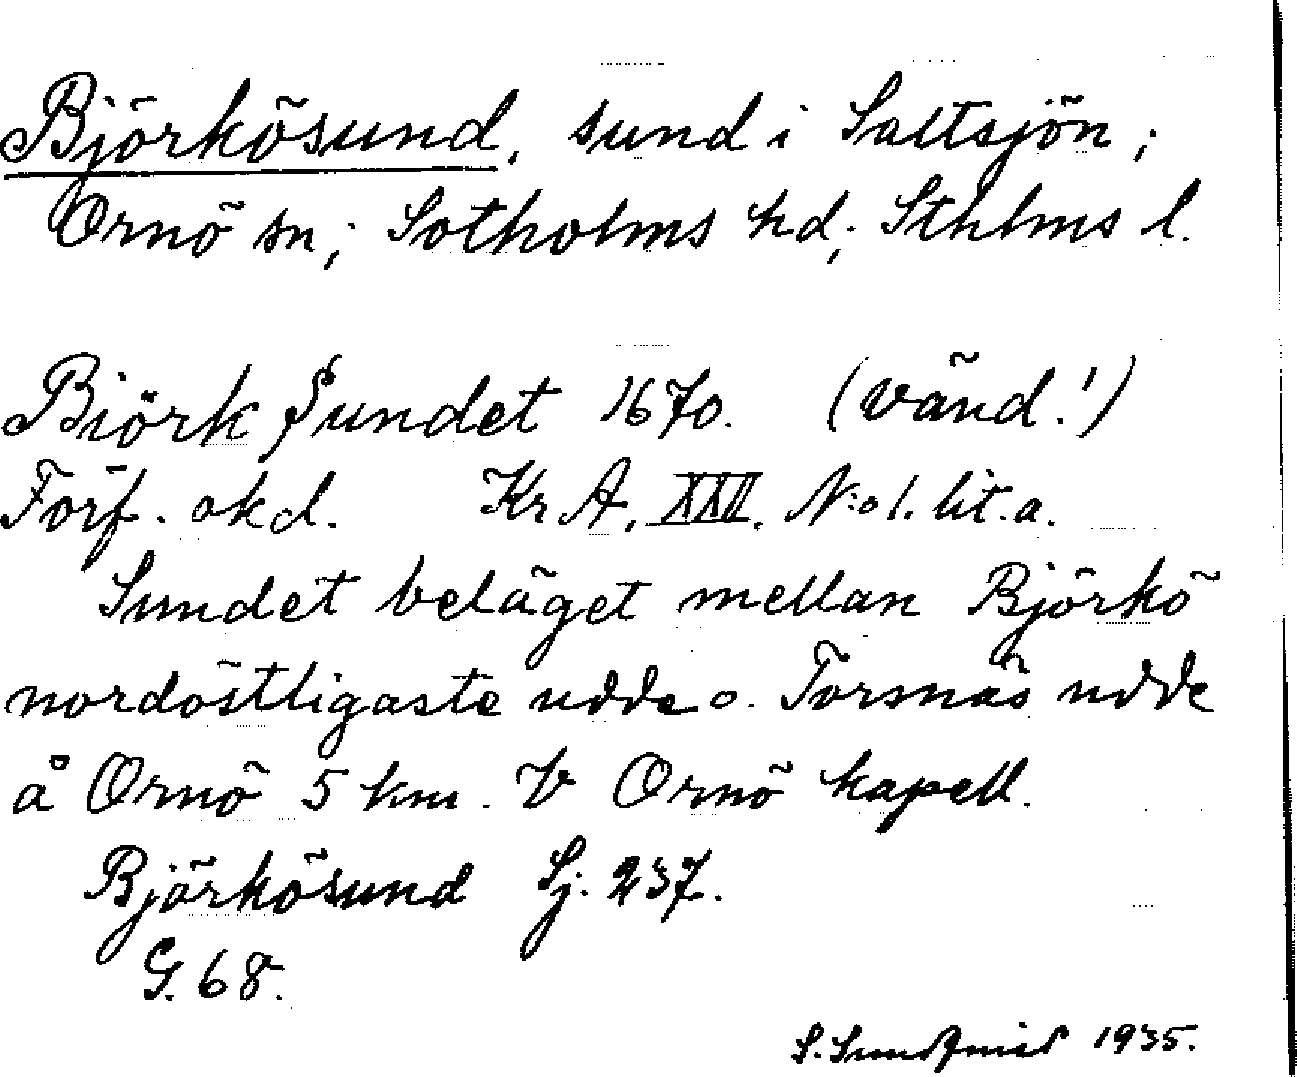 Björkösund, sund i Saltsjön;
Ornö sn; Sotholms hd; Sthlms l.
Biörk Sundet 1670. (vänd!)
Förf. okd. Kr A. XXII. N:o 1. lit. a.
Sundet beläget mellan Björkö
nordöstligaste udde o. Torsnäs udde
å Ornö 5 km. V Ornö kapell.
Björkösund Sj. 237.
G. 68.
S. Sundqvist 1935.